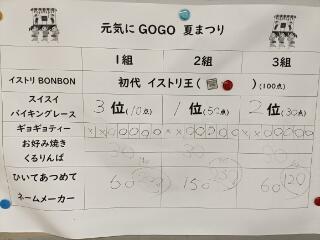 元気に GOGO 夏まつり
1組 2組 3組
イストリ BONBON 初代 イストリ王( )(100点)
スイスイ
バイキングレース 3位(10点) 1位(50点) 2位(30点)
ギョギョティー ××〇〇〇〇 ×〇〇〇〇〇 ××〇〇〇〇
お好み焼き
くるりんぱ 30 30
ひいてあつめて
ネームメーカー 60 150 60 120